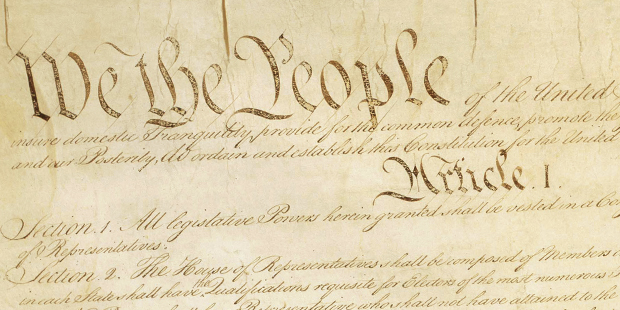 We the People of the United
insure domestic Tranquility, provide for the common defence, promote the
and our Posterity, do ordain and establish this Constitution for the United
Article. I.
Section. 1. All legislative Powers herein granted shall be vested in a Con
of Representatives.
Section. 2. The House of Representatives shall be composed of Members
in each State shall have the Qualifications requisite for Electors of the most numerous
Representative who shall not have attained to the